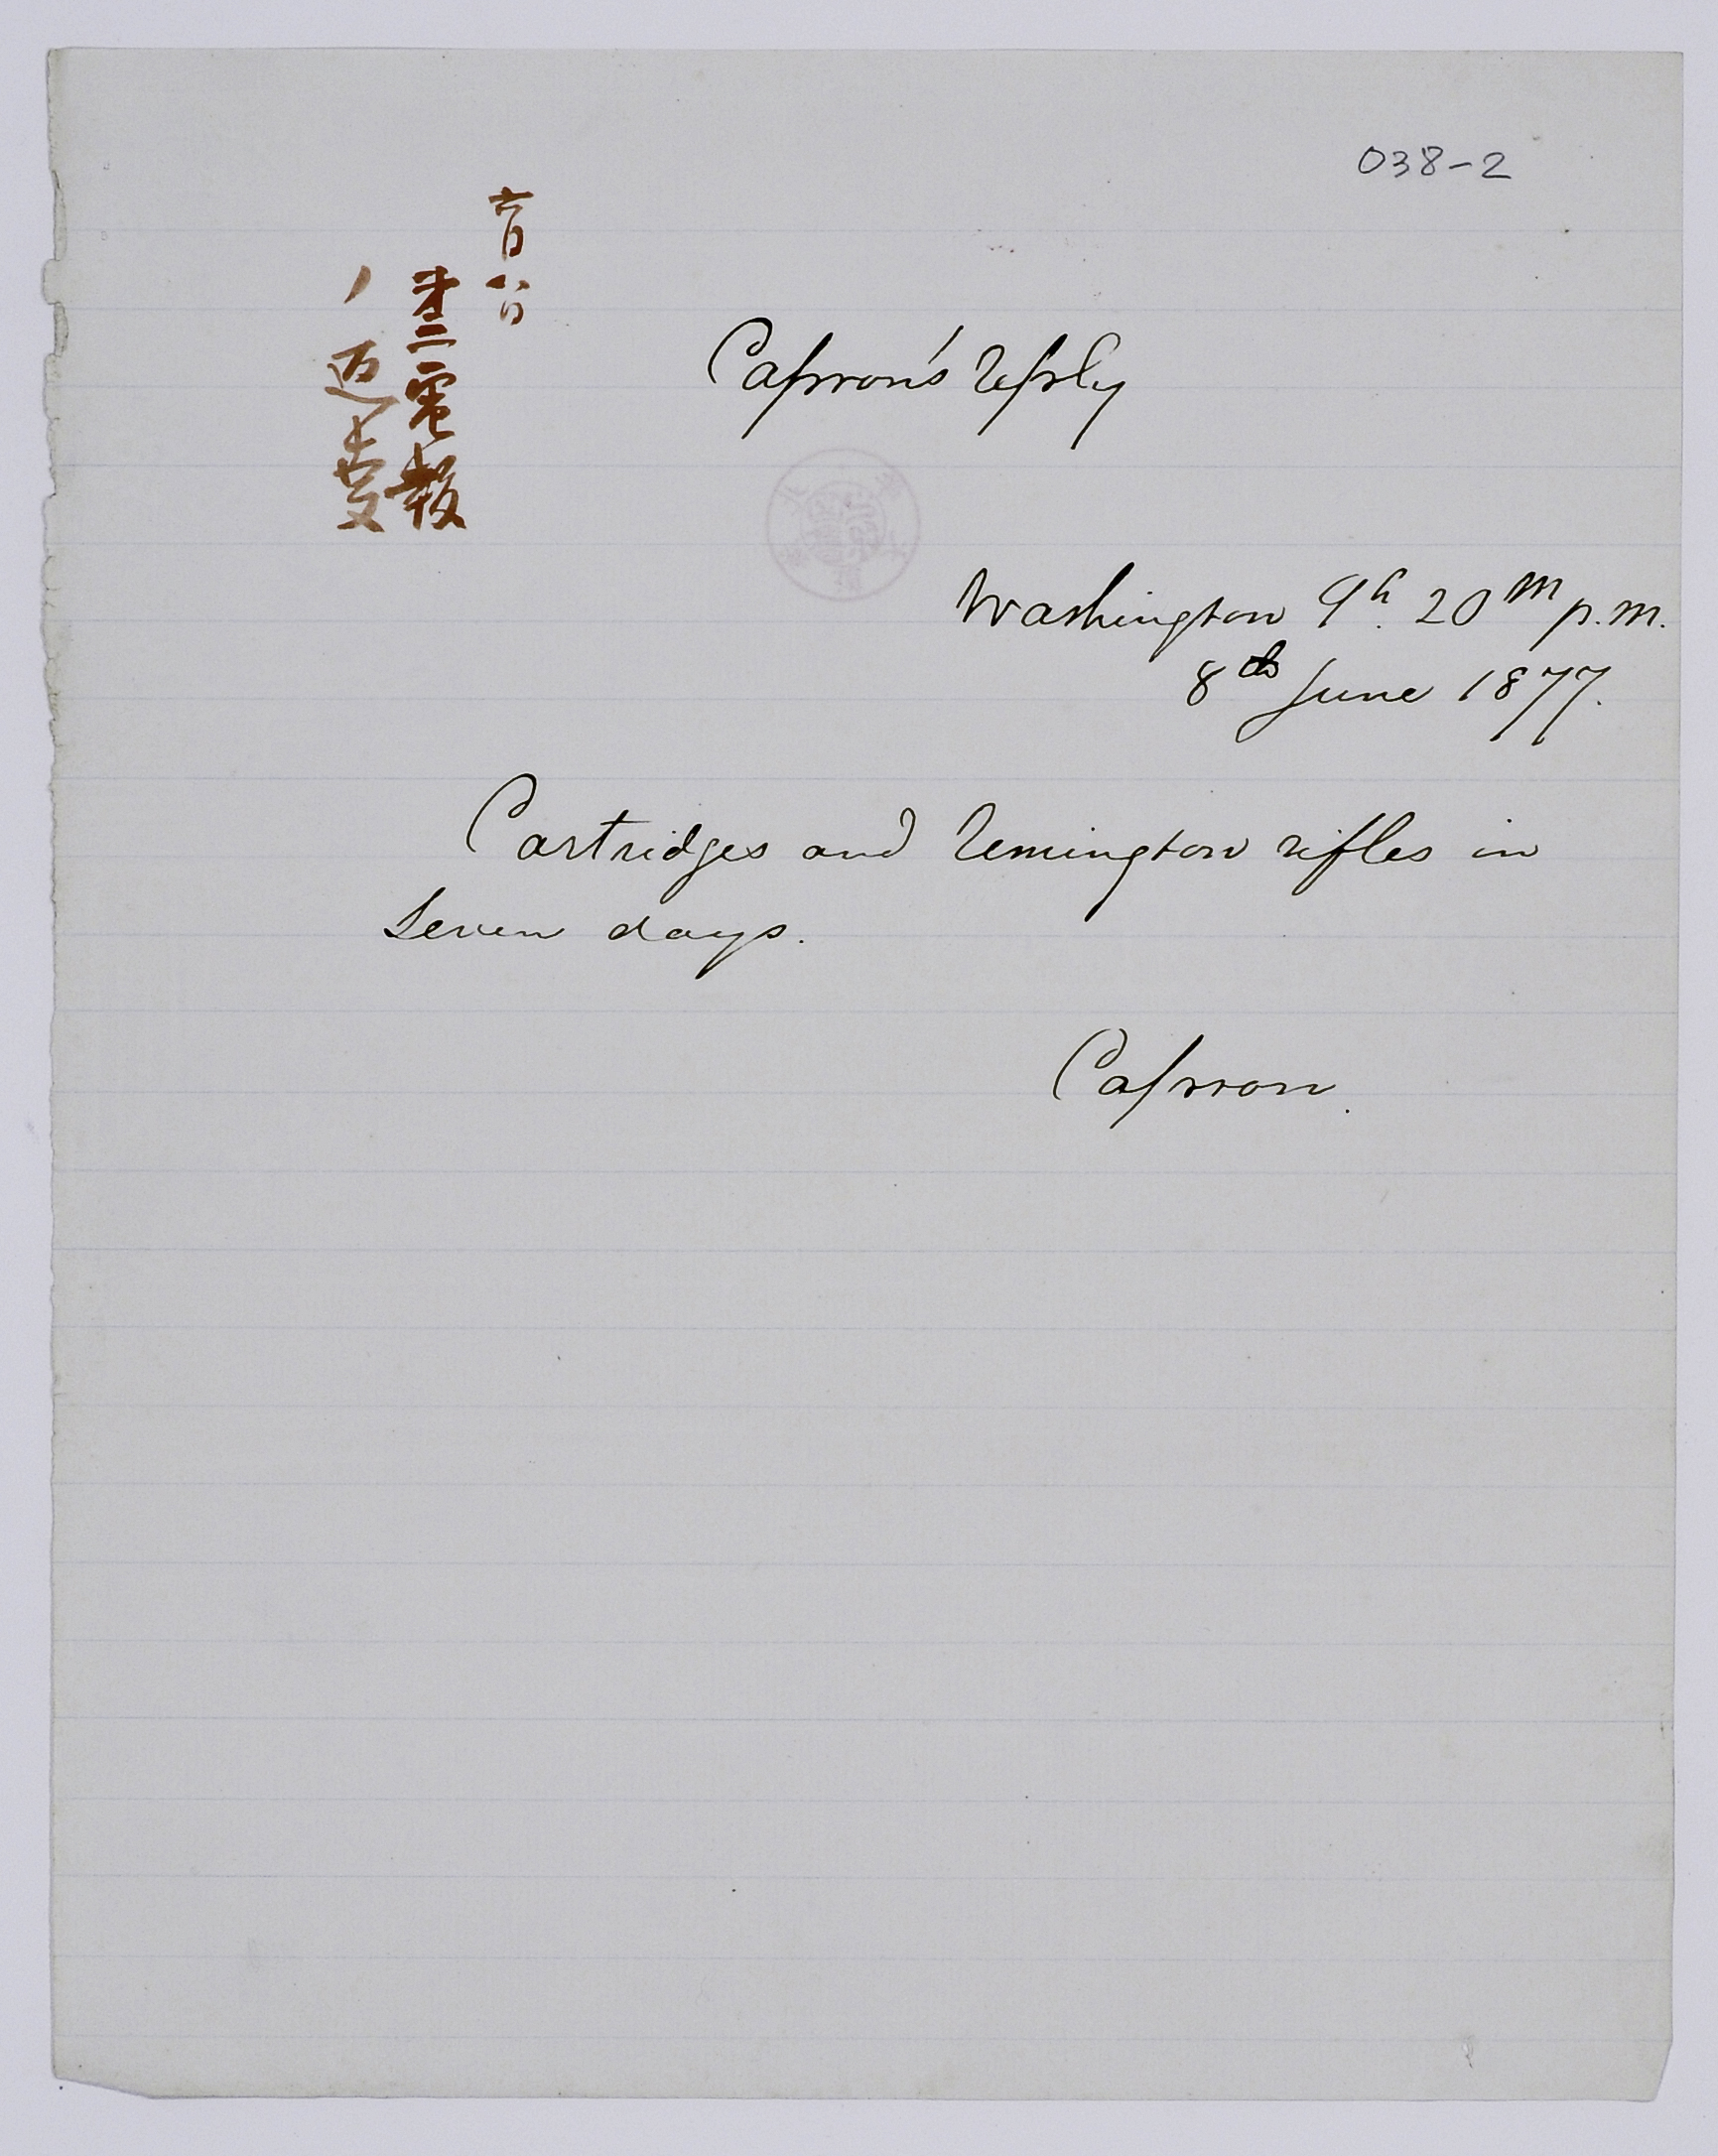 038-2
六月八日
第二電報
ノ返事
Capron's reply
Washington 9h. 20m p.m.
8th June 1877.
Cartridges and remington rifles in
seven days.
Capron.